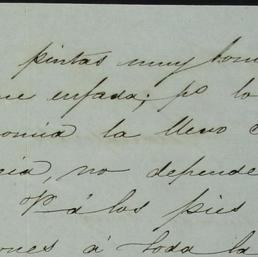 pintas muy bon
ue enfada; po lo
omia la llevo
cia, no depende
P á los pies
ones á toda la